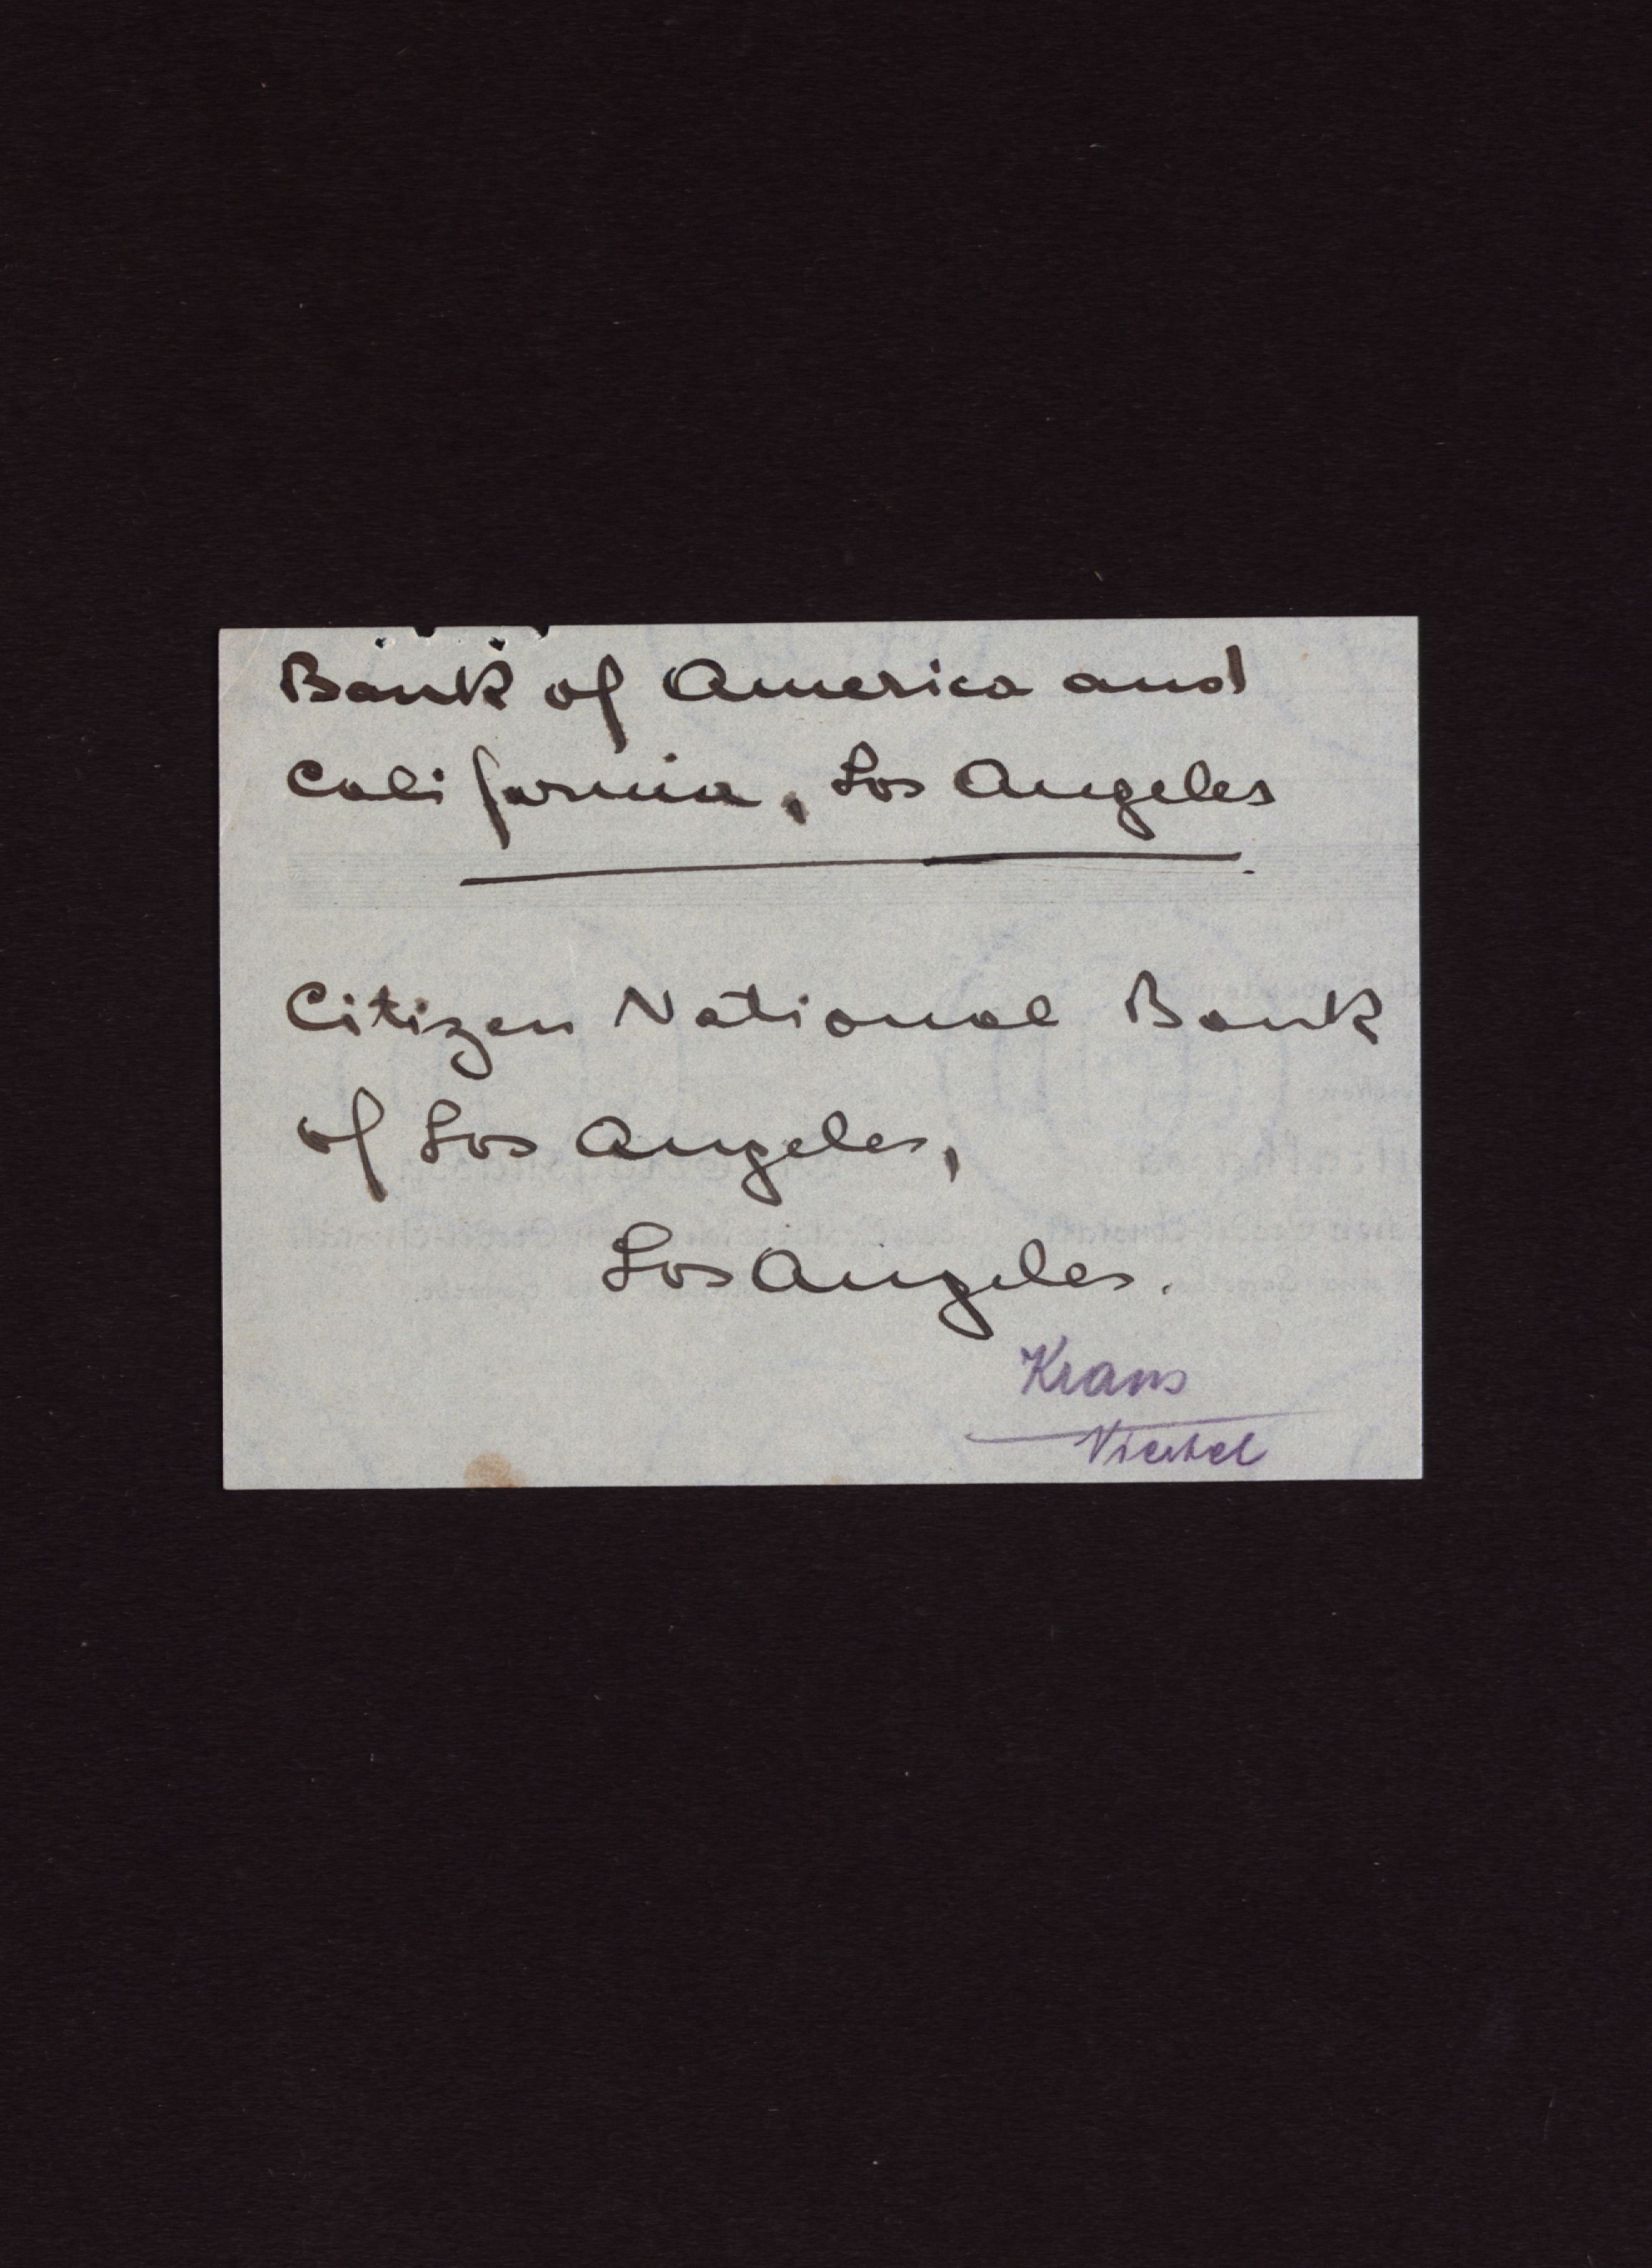 Bank of America and
California, Los Angeles
Citizen National Bank
of Los Angeles,
Los Angeles.
Kraus
Viertel